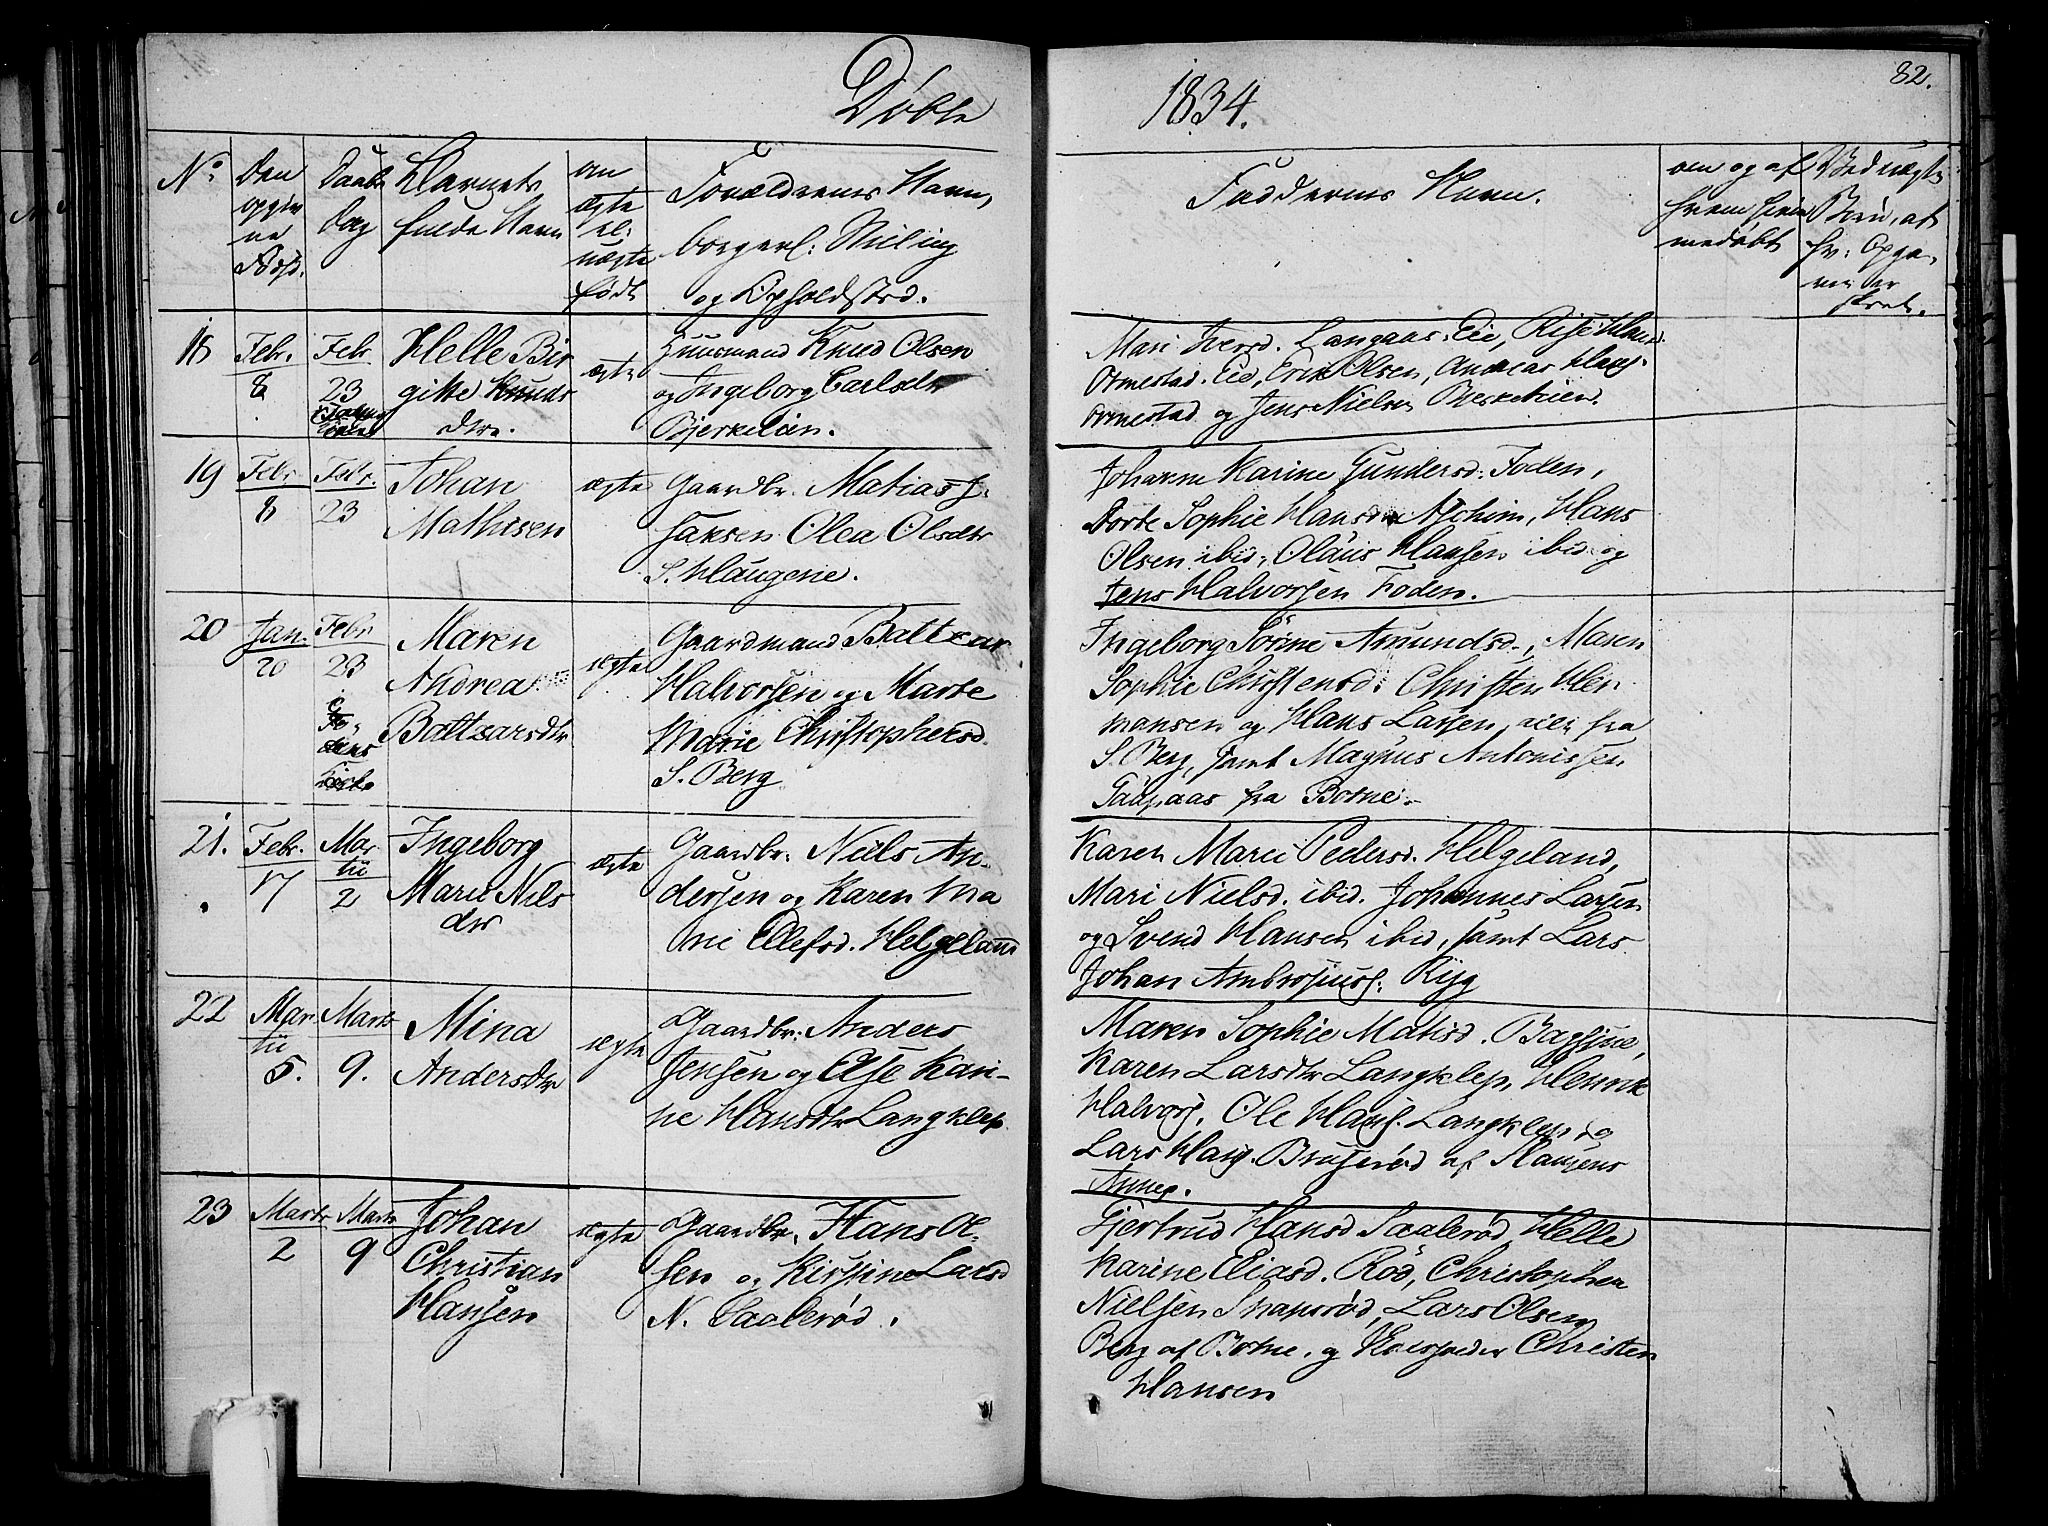 Døbte
1834.
82.
No.
Den
opgiv
ne
Daabs
Dag
Barnets
fulde Navn
om
ægte
el:
uægte
født
Forældrenes Navn,
borgerl: Stilling
og Opholdsted.
Faddernes Navn.
om og af
hvem hjem
medøbt
Ved uægte
Børn, at
18
Febr.
8
Febr
23
Helle Bir
gitte Knuds
dtr.
ægte
Huusmand Knud Olsen
og Ingeborg Carlsdtr
Bjerkelien.
Mari Langaas Eie,
Ormestad Eie, Erik Olsen,
Ormestad og Jens Nielsen
19
Febr
8
Febr.
23
Johan
Mathisen
ægte
Gaardbr. Matias J:
saksen Olea Olsdtr
S. Haugene.
Johanne Karine Gundersd: Foden,
Dorte Sophie Hansdtr Hans
Olsen ibid, Olaus Hansen ibid og
Jens Halvorsen Foden.
20
Jan.
20
Febr
23
Maren
Andrea
Baltzarsdtr
ægte
Gaardmand Baltzar
Halvorsen og Marte
Marie Christophersd.
S. Berg
Ingeborg Sørine Amundsd., Maren
Sophie Christensd: Christen Her
mansen og Hans Larsen, fra
S. Berg, samt Magnus Antonissen
fra Botne.
21.
Febr.
17
Mar
tii
2
Ingeborg
Marie Niels
dtr
ægte
Gaardbr. Niels An-
dersen og Karen Ma
rie Ellefsd. Helgeland
Karen Marie Pedersd. Helgeland,
Mari Nielsd. ibid. Johannes Larsen
og Svend Hansen ibid, samt Lars
Johan Ambrosiuss:
22
Mar.
tii
5.
Marts
9.
Mina
Andersdtr
ægte
Gaardbr: Anders
Jensen og Else Kari-
ne Hansdtr Langklep
Maren Sophie Matisd.
Karen Larsdtr Langklep, Henrik
Halvors, Ole Hans. Langklep og
Lars Hans. af
Annex.
23
Marts
2
Marts
9
Johan
Christian
Hansen
ægte
Gaardbr. Hans Ol-
sen og Kirstine Larsd
N. Saalerød.
Gjertrud Hansd Saalerød, Helle
Karine Eliasd. Rød, Christopher
Nielsen Lars Olsen
Berg af Botne. og Christen
Hansen